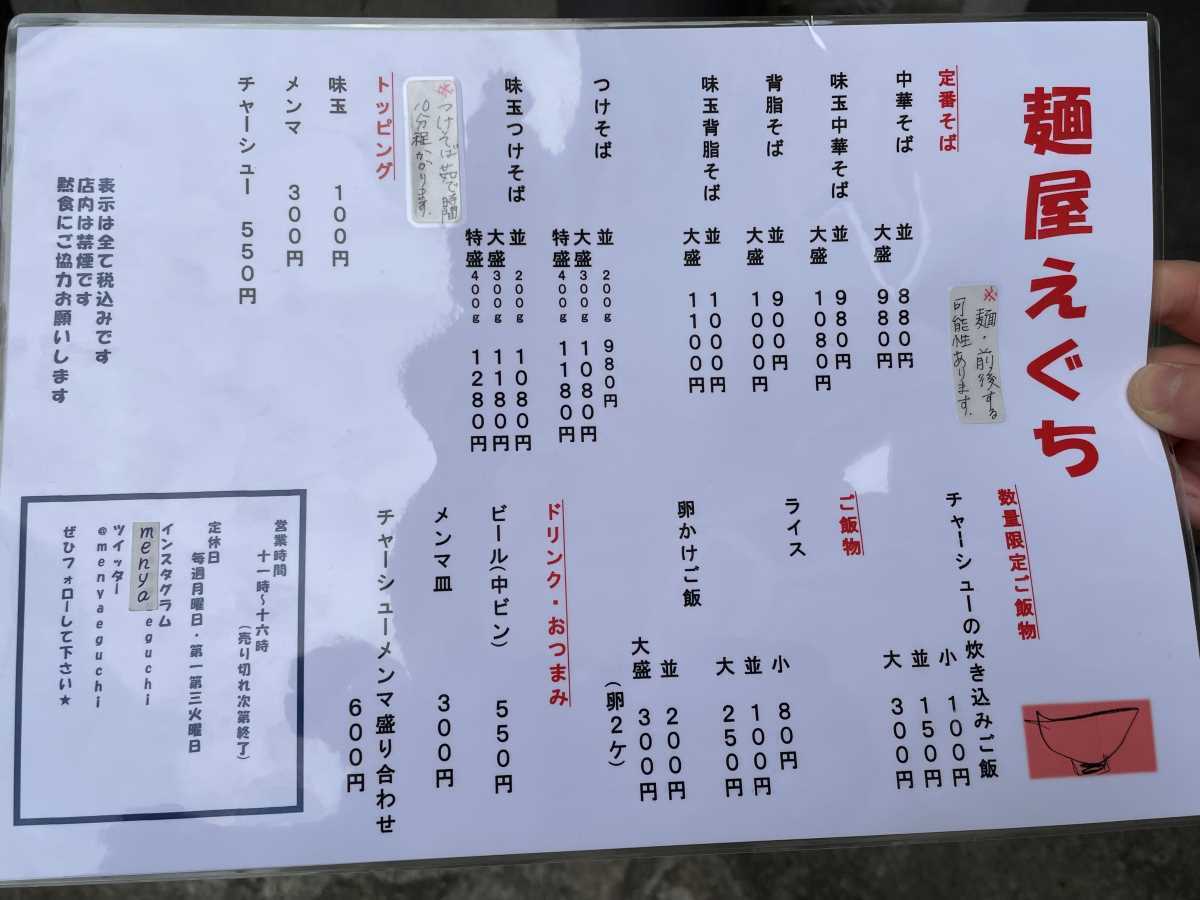 麺屋えぐち
※麺・前後する
可能性あります。
定番そば
中華そば
並 880円
大盛 980円
味玉中華そば
並 980円
大盛 1080円
背脂そば
並 900円
大盛 1000円
味玉背脂そば
並 1000円
大盛 1100円
つけそば
並 200g 980円
大盛 300g 1080円
特盛 400g 1180円
味玉つけそば
並 200g 1080円
大盛 300g 1180円
特盛 400g 1280円
※つけそば茹で時間
10分程かかります。
トッピング
味玉 100円
メンマ 300円
チャーシュー 550円
表示は全て税込みです
店内は禁煙です
黙食にご協力お願いします
数量限定ご飯物
チャーシューの炊き込みご飯
小 100円
並 150円
大 300円
ご飯物
ライス
小 80円
並 100円
大 250円
卵かけご飯
並 200円
大盛 300円
(卵2ケ)
ドリンク・おつまみ
ビール(中ビン) 550円
メンマ皿 300円
チャーシューメンマ盛り合わせ
600円
営業時間
十一時～十六時
(売り切れ次第終了)
定休日
毎週月曜日・第一第三火曜日
インスタグラム
menya_eguchi
ツイッター
@menyaeguchi
ぜひフォローして下さい★